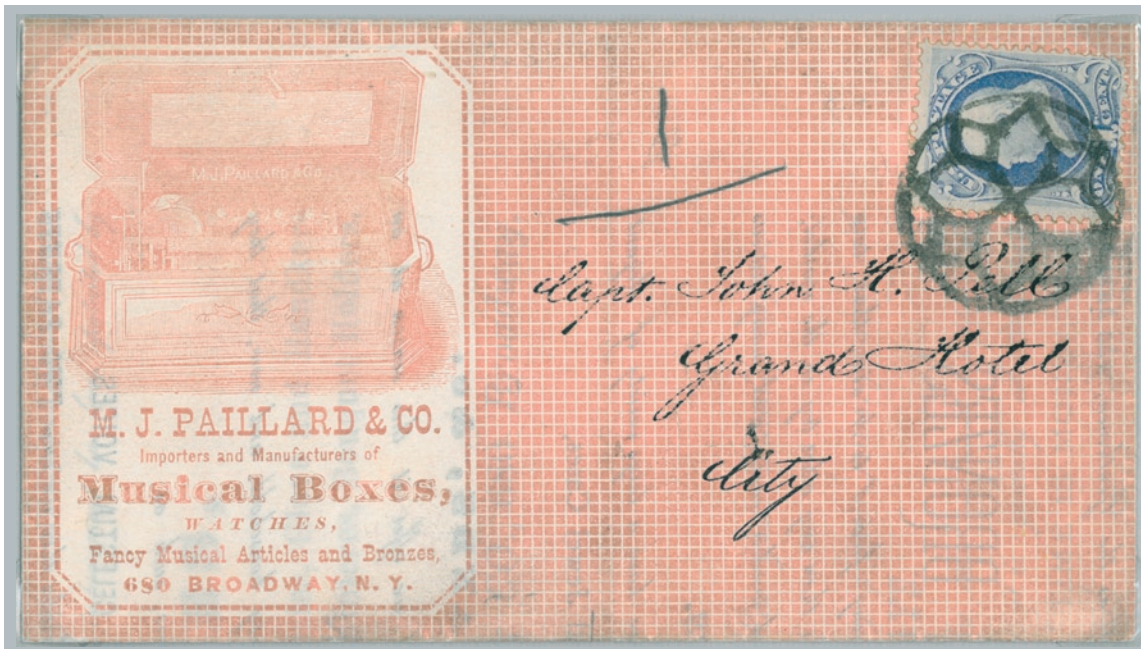 M.J. PAILLARD & CO.
M. J. PAILLARD & CO.
Importers and Manufacturers of
Musical Boxes,
WATCHES,
Fancy Musical Articles and Bronzes,
680 BROADWAY, N. Y.
1
POSTAGE
Capt. John H. Pell
Grand Hotel
City